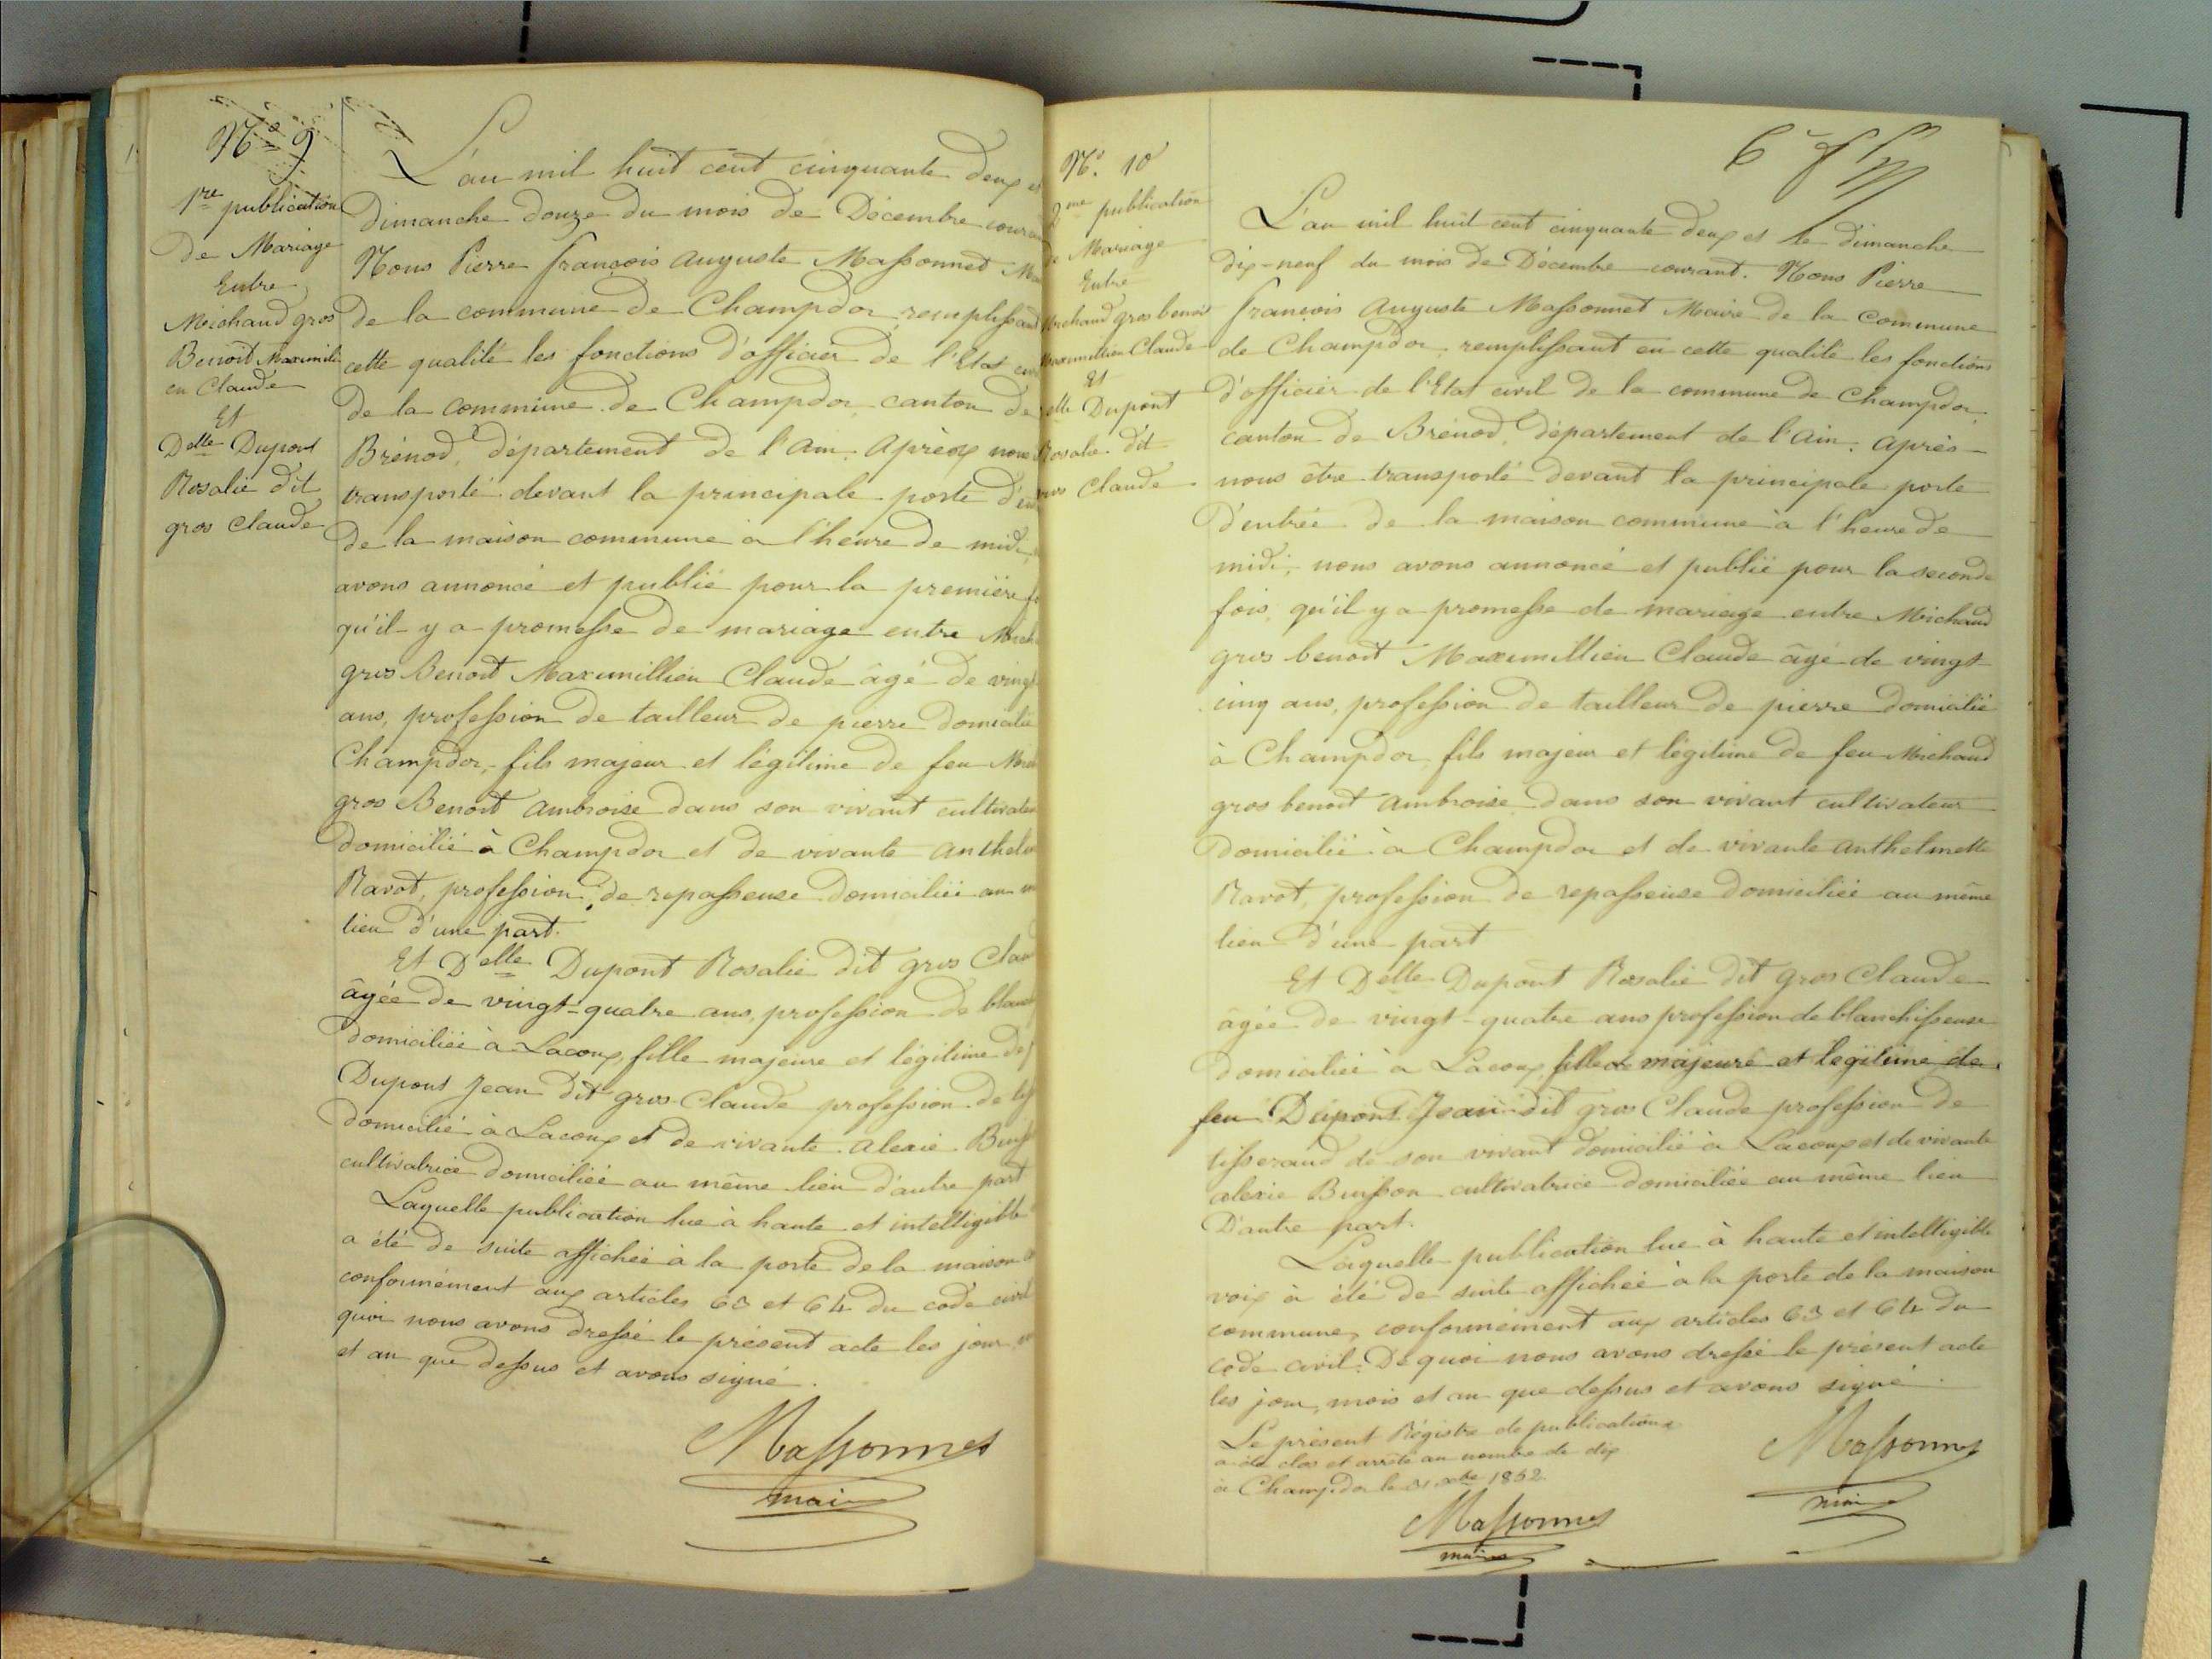 N° 9
1re publication
de Mariage
Entre
Michaud gros
Benoit Maximili
en Claude
Et
Delle Dupont
Rosalie dit
gros Claude
L'an mil huit cent cinquante deux et
Dimanche douze du mois de Décembre couran
Nous Pierre françois auguste Massonnet Ma
de la commune de Champdor, remplissant
cette qualité les fonctions d'officier de l'Etat civ
de la commune de Champdor canton de
Brénod, département de l'ain. Après nous
transporté devant la principale porte d'en
de la maison commune à l'heure de midi,
avons annoncé et publié pour la première fo
qu'il y a promesse de mariage entre Mich
gros Benoit Maximillien Claude âgé de vingt
ans, profession de tailleur de pierre domicilié
Champdor, fils majeur et légitime de feu Mich
gros Benoit ambroise dans son vivant cultivateu
domicilié à Champdor et de vivante anthelm
Ravot, profession de repasseuse domiciliée au m
lieu d'une part.
Et Delle Dupont Rosalie dit gros Clau
âgée de vingt-quatre ans, profession de blanch
domiciliée à Lacoux, fille majeure et légitime de f
Dupont Jean dit gros Claude profession de tiss
domicilié à Lacoux et de vivante alexie Buiss
cultivatrice domiciliée au même lieu d'autre part
Laquelle publication lue à haute et intelligible
a été de suite affichée à la porte de la maison c
conformément aux articles 63 et 64 du code civil
quoi nous avons dressé le présent acte les jour, m
et an que dessus et avons signé.
Massonnet
maire
N° 10
2me publication
de Mariage
Entre
Michaud gros benoit
Maximillien Claude
Et
elle Dupont
Rosalie dit
gros Claude
L'an mil huit cent cinquante deux et le dimanche
dix-neuf du mois de Décembre courant. Nous Pierre
françois auguste Massonnet Maire de la Commune
de Champdor, remplissant en cette qualité les fonctions
d'officier de l'Etat civil de la commune de Champdor,
canton de Brénod, département de l'ain. Après
nous être transporté devant la principale porte
d'entrée de la maison commune à l'heure de
midi, nous avons annoncé et publié pour la seconde
fois, qu'il y a promesse de mariage entre Michaud
gros benoit Maximillien Claude âgé de vingt
cinq ans, profession de tailleur de pierre domicilié
à Champdor, fils majeur et légitime de feu Michaud
gros benoit ambroise dans son vivant cultivateur
domicilié à Champdor et de vivante anthelmette
Ravot, profession de repasseuse domiciliée au même
lieu d'une part
Et Delle Dupont Rosalie dit gros Claude
âgée de vingt-quatre ans profession de blanchisseuse
domiciliée à Lacoux, fille majeure et légitime de
feu Dupont Jean dit gros Claude profession de
tisserand de son vivant domicilié à Lacoux et de vivante
alexie Buisson cultivatrice domiciliée au même lieu
D'autre part.
Laquelle publication lue à haute et intelligible
voix a été de suite affichée à la porte de la maison
commune, conformément aux articles 63 et 64 du
code civil. De quoi nous avons dressé le présent acte
les jour, mois et an que dessus et avons signé.
Massonnet
maire
Le présent Régistre de publications
a été clos et arrêté au nombre de dix
à Champdor le 31 xbre 1852.
Massonnet
maire